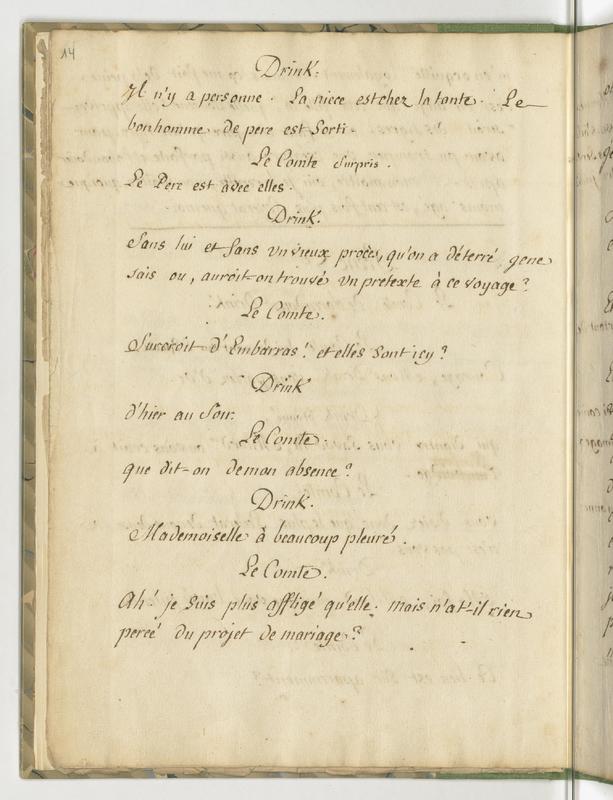 14
Drink.
Il n'y a personne. La niece est chez la tante. Le
bonhomme de pere est Sorti.
Le Comte surpris.
Le Pere est avec elles.
Drink.
Sans lui et Sans Un vieux procès, qu'on a déterré gene
sais ou, auroit-on trouvé Un pretexte à ce voyage?
Le Comte.
Surcroit d'Embarras! et elles sont icy?
Drink
d'hier au Soir.
Le Comte.
que dit-on demon absence?
Drink.
Mademoiselle à beaucoup pleuré.
Le Comte.
Ah! je Suis plus affligé qu'elle. mais n'at-il rien
percé du projet de mariage?